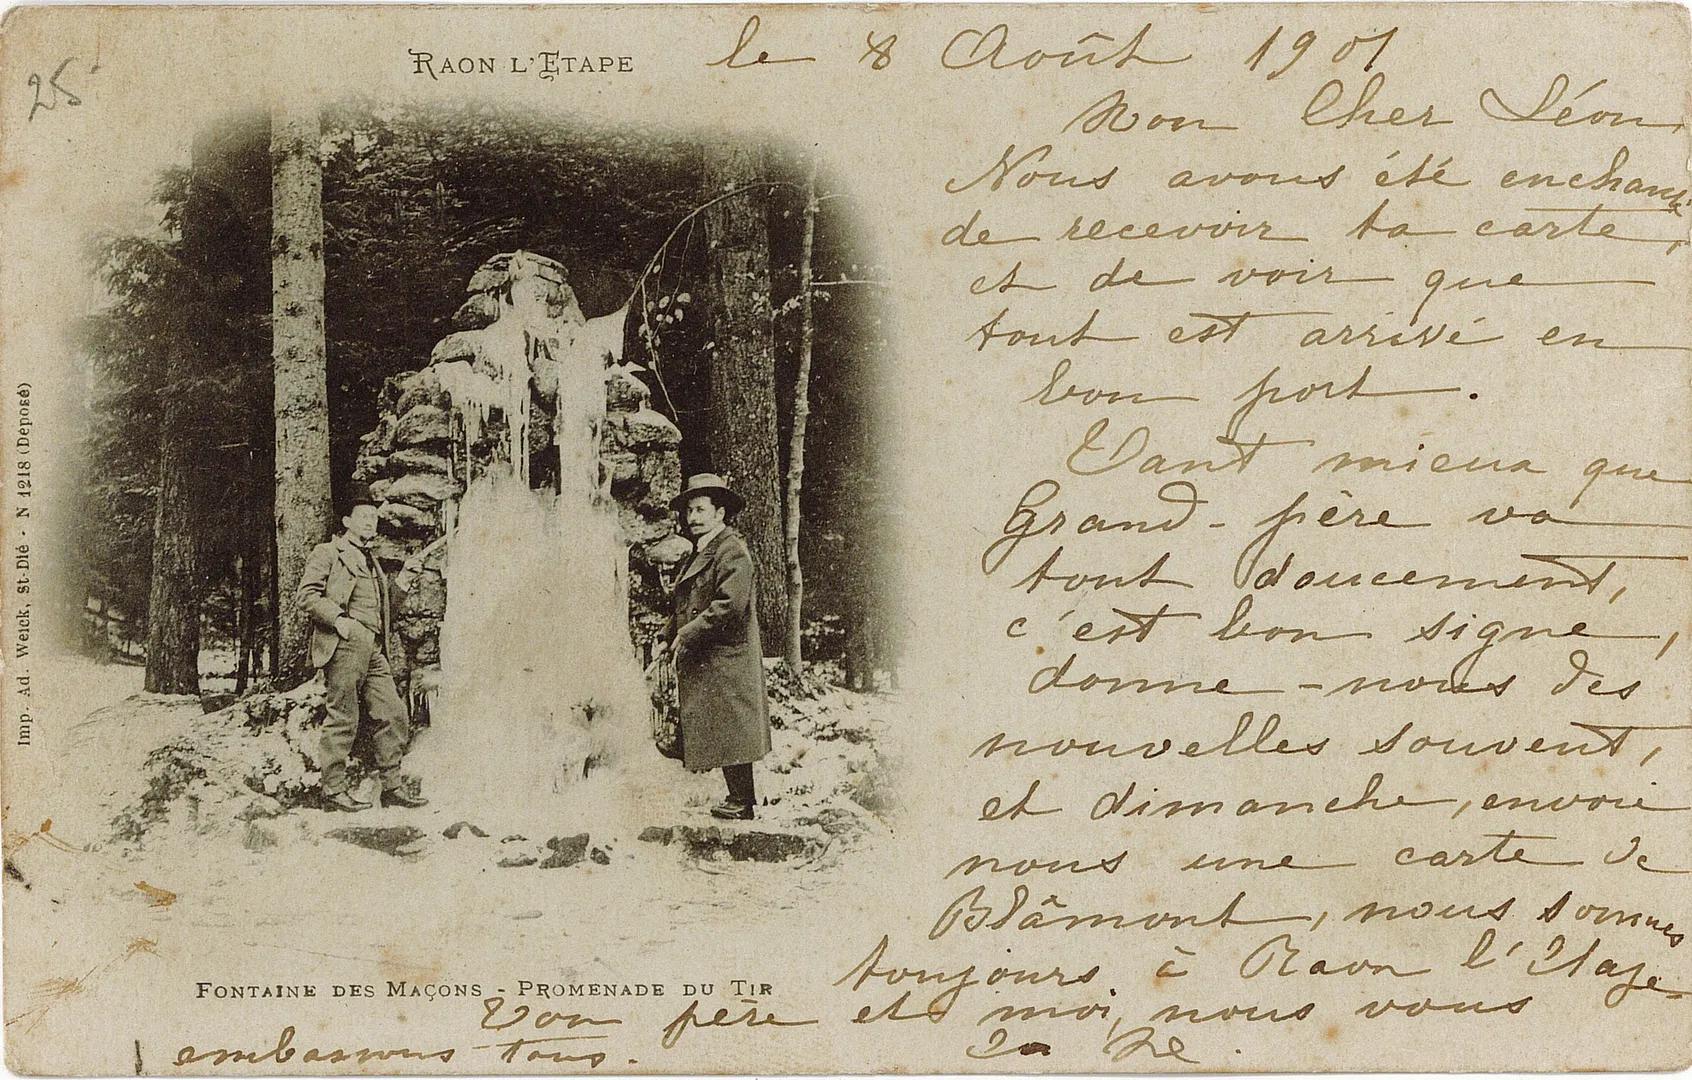 25
RAON L'ETAPE
le 8 Août 1901
Mon Cher Léon,
Nous avons été enchanté
de recevoir ta carte,
et de voir que
tout est arrivé en
bon port.
Tant mieux que
Grand-père va
tout doucement,
c'est bon signe,
donne-nous des
nouvelles souvent,
et dimanche, envoie
nous une carte de
Blâmont, nous sommes
toujours à Raon l'Etape
FONTAINE DES MAÇONS - PROMENADE DU TIR
Ton père et moi, nous vous
embrassons tous.
Imp. Ad. Weick, St-Dié - N 1218 (Déposé)